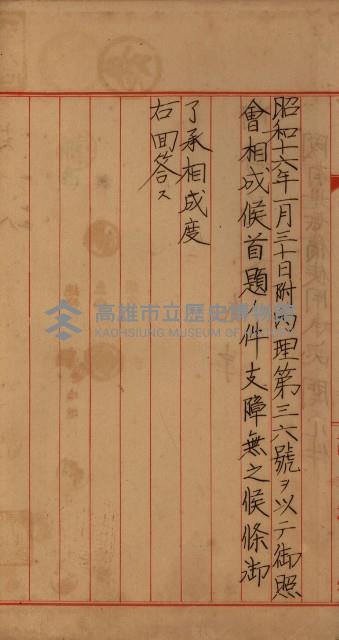 昭和十六年一月三十日附馬理第三六號ヲ以テ御照
會相成候首題ノ件支障無之候條御
了承相成度
右回答ス
高雄市立歷史博物館
KAOHSIUNG MUSEUM OF HISTORY